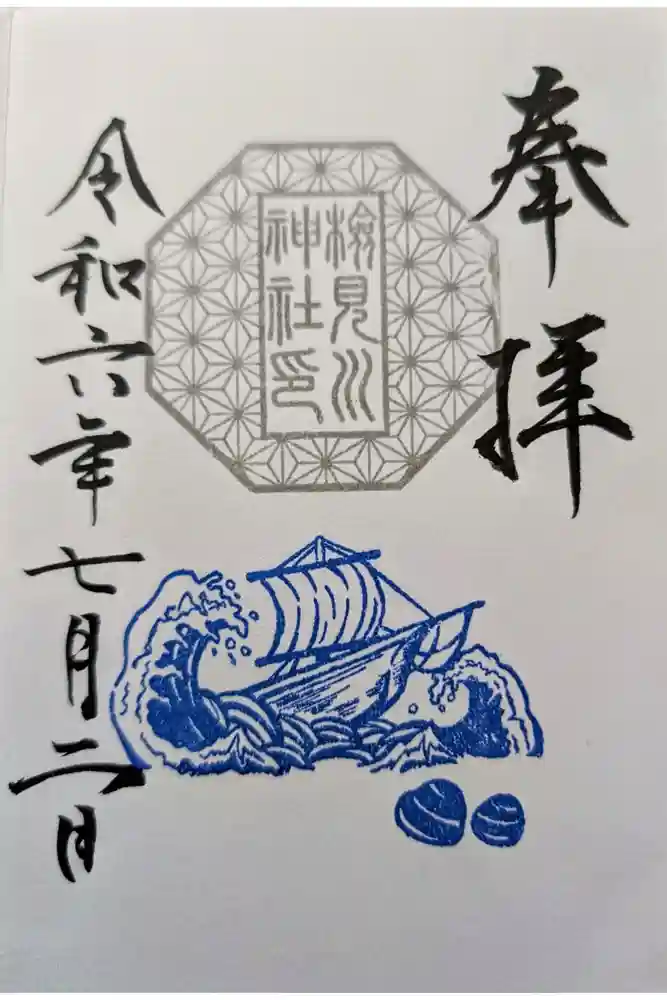 奉拝
検見川
神社印
令和六年七月二日